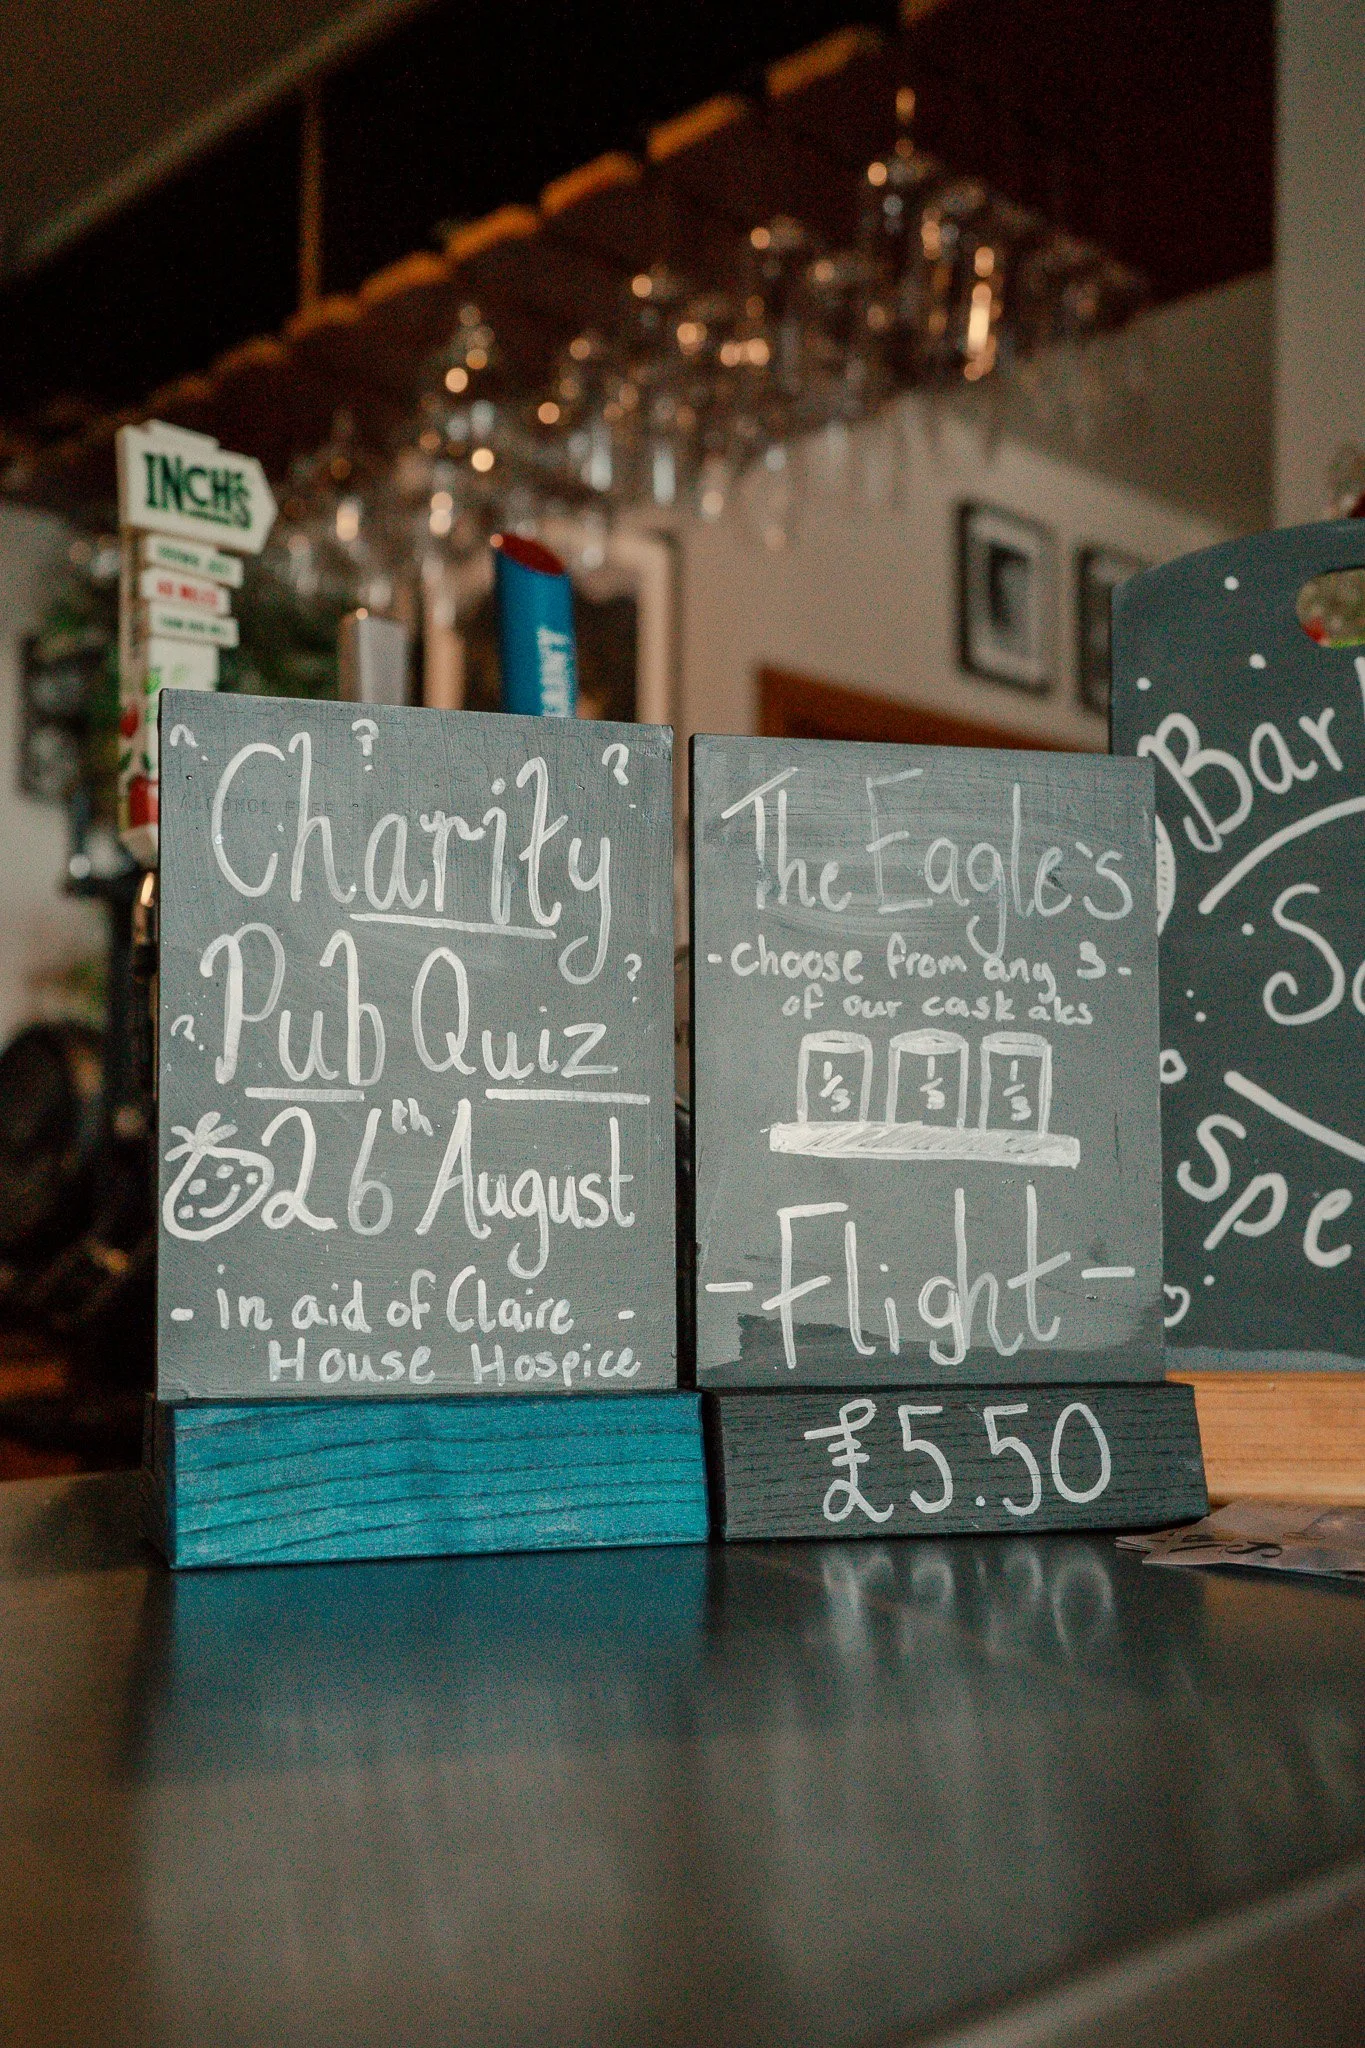 INCH'S
Charity
Pub Quiz
26th August
- in aid of Claire -
House Hospice
The Eagle's
- choose from any 3 -
of our cask ales
1/3 1/3 1/3
- Flight -
£5.50
Bar